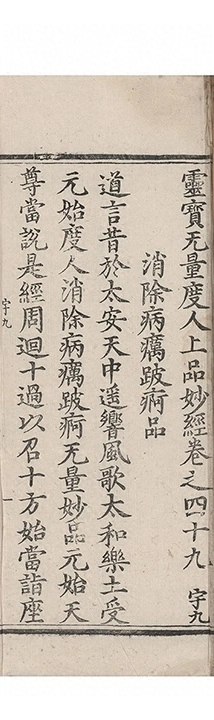 靈寳无量度人上品妙經卷之四十九 宇九
消除病癘跛痾品
道言昔於太安天中遥響風歌太和樂土受
元始度人消除病癘跛痾无量妙品元始天
尊當說是經周迴十過以召十方始當詣座
宇九 一